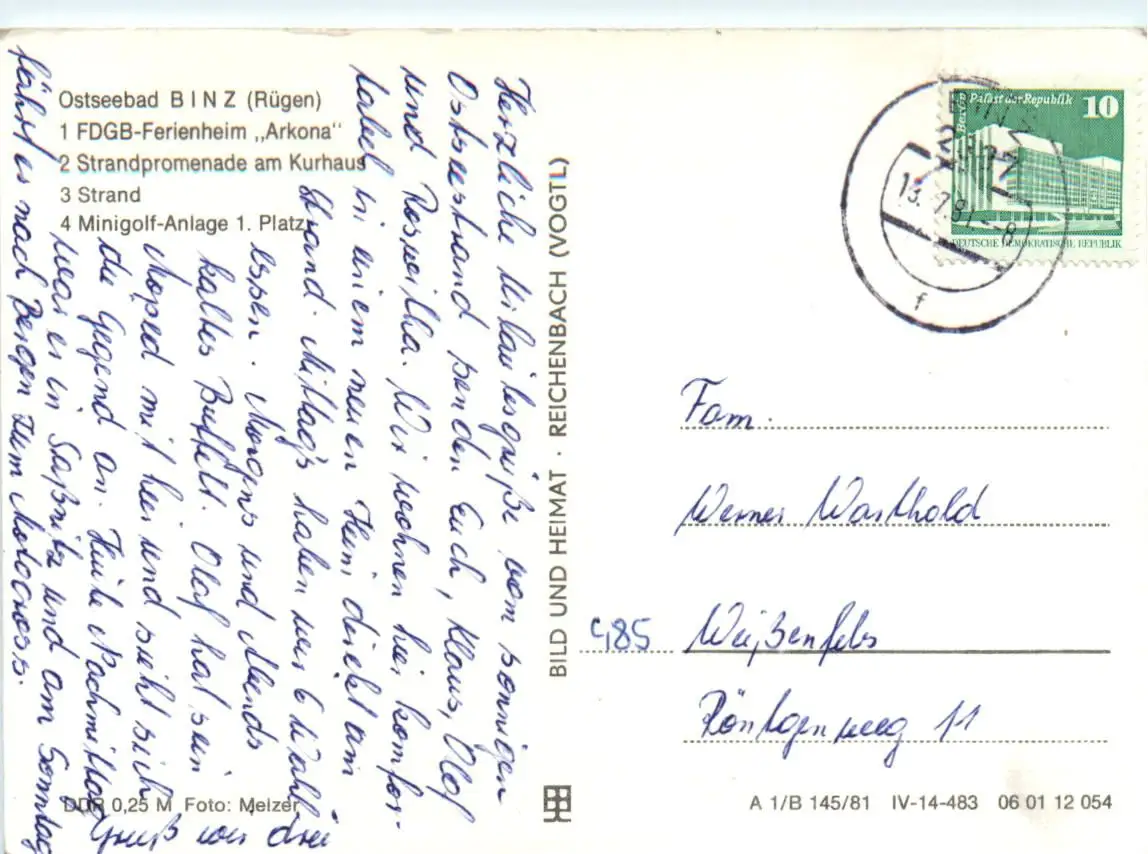 Ostseebad BINZ (Rügen)
1 FDGB-Ferienheim „Arkona“
2 Strandpromenade am Kurhaus
3 Strand
4 Minigolf-Anlage 1. Platz
Herzliche Urlaubsgrüße vom sonnigen
Ostseestrand senden Euch, Klaus, Olaf
und Roswitha. Wir wohnen hier komfor-
tabel in einem neuen Heim direkt am
Strand. Mittag's haben wir 6 Wahl-
essen. Morgens und Abends
kaltes Buffett. Olaf hat sein
Moped mit hier und sieht sich
die Gegend an. Heute Nachmittag
war er in Saßnitz und am Sonntag
fährt er nach Bergen zum Motocross.
Gruß wir drei
DDR 0,25 M Foto: Melzer
BILD UND HEIMAT · REICHENBACH (VOGTL)
Palast der Republik
Berlin
10
DEUTSCHE DEMOKRATISCHE REPUBLIK
BINZ
13.7.81.-8
f
Fam.
Werner Warthold
Weißenfels
Röntgenweg 11
A 1/B 145/81 IV-14-483 06 01 12 054